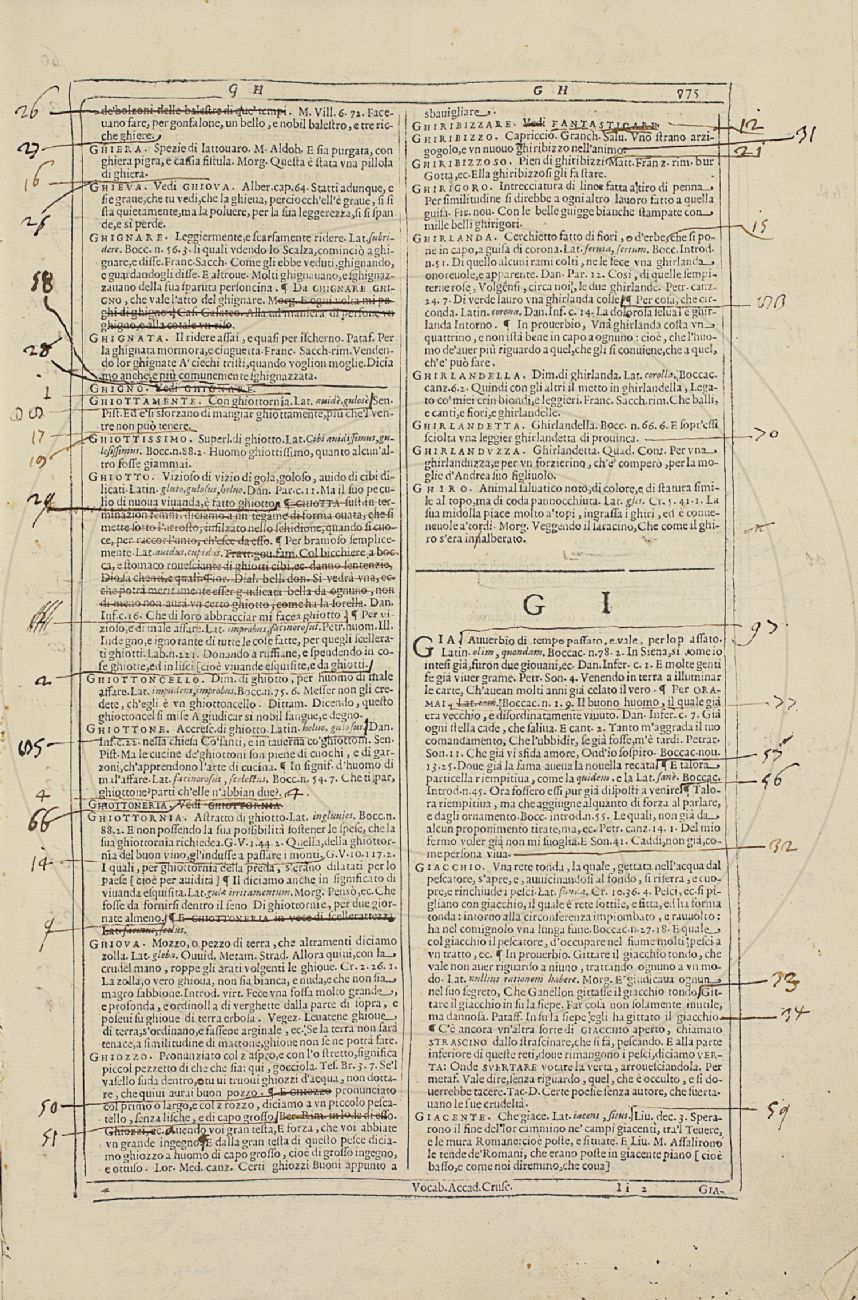 G H
G H
975
de'bolzoni delle balestre di que' tempi. M. Vill. 6. 72. Face-
uano fare, per gonfalone, un bello, e nobil balestro, e tre ric-
che ghiere.
GHIERA. Spezie di lattouaro. M. Aldob. E sia purgata, con
ghiera pigra, e cassia fistula. Morg. Questa è stata vna pillola
di ghiera.
GHIEVA. Vedi GHIOVA. Alber. cap. 64. Statti adunque, e
sie graue, che tu vedi, che la ghieua, perciocch'ell'è graue, si si
sta quietamente, ma la poluere, per la sua leggerezza, si si span
de, e si perde.
GHIGNARE. Leggiermente, e scarsamente ridere. Lat. subri-
dere. Bocc. n. 56. 3. Il quali vdendo lo Scalza, cominciò a ghi-
gnare, e disse. Franc. Sacch. Come gli ebbe veduti, ghignando,
e guardandogli disse. E altroue. Molti ghignauano, e sghignaz-
zauano della sua sparuta personcina. ¶ Da GHIGNARE GHI-
GNO, che vale l'atto del ghignare. Morg. E ogni volta mi pa-
ghi di ghigno. Cas. Galateo. Alla tal maniera di persone vn
ghigno, e alla cotale vn riso.
GHIGNATA. Il ridere assai, e quasi per ischerno. Pataf. Per
la ghignata mormora, e cinguetta. Franc. Sacch. rim. Venden-
do lor ghignate A' ciechi tristi, quando voglion moglie. Dicia
mo anche, e più comunemente sghignazzata.
GHIGNO. Vedi GHIGNARE.
GHIOTTAMENTE. Con ghiottornia. Lat. auidè, gulosè. Sen.
Pist. Ed e' si sforzano di mangiar ghiottamente, più che'l ven-
tre non può tenere.
GHIOTTISSIMO. Superl. di ghiotto. Lat. Cibi auidissimus, gu-
losissimus. Bocc. n. 88. 2. Huomo ghiottissimo, quanto alcun'al-
tro fosse giammai.
GHIOTTO. Vizioso di vizio di gola, goloso, auido di cibi di-
licati. Latin. gluto, gulosus, heluo. Dan. Par. c. 11. Ma il suo pecu-
lio di nuoua viuanda, è fatto ghiotto. ¶ GHIOTTA sust. in ter-
minazion femm. diciamo a un tegame di forma ouata, che si
mette sotto l'arrosto, infilzato nello schidione, quando si cuo-
ce, per raccor l'unto, ch'esce da esso. ¶ Per bramoso semplice-
mente. Lat. auidus, cupidus. Fratt. gou. fam. Col bicchiere a boc-
ca, e stomaco rouesciante di ghiotti cibi, ec. danno sentenzie,
Dan.
Inf. c. 16. Che di loro abbracciar mi facea ghiotto. ¶ Per vi-
zioso, e di male affare. Lat. improbus, facinorosus. Petr. huom. Ill.
Indegno, e ignorante di tutte le cose fatte, per quegli scellera-
ti ghiotti. Lab. n. 221. Donando a ruffiane, e spendendo in co-
se ghiotte, ed in lisci [cioè viuande esquisite, e da ghiotti.
GHIOTTONCELLO. Dim. di ghiotto, per huomo di male
affare. Lat. impudens, improbus. Bocc. n. 75. 6. Messer non gli cre-
dete, ch'egli è vn ghiottoncello. Dittam. Dicendo, questo
ghiottoncel si mise A giudicar si nobil sangue, e degno.
GHIOTTONE. Accresc. di ghiotto. Latin. heluo, gulosus. Dan.
Inf. c. 22. nella chiesa Co'santi, e in tauerna co'ghiottoni. Sen.
Pist. Ma le cucine de'ghiottoni son piene di cuochi, e di gar-
zoni, ch'apprendono l'arte di cucina. ¶ In signif. d'huomo di
mal'affare. Lat. facinorosus, scelestus. Bocc. n. 54. 7. Che ti par,
ghiottone? parti ch'elle n'abbian due?
GHIOTTONERIA, Vedi GHIOTTORNIA.
GHIOTTORNIA. Astratto di ghiotto. Lat. ingluuies. Bocc. n.
88. 2. E non possendo la sua possibilità sostener le spese, che la
sua ghiottornia richiedea. G. V. 1. 44. 2. Quella, della ghiottor-
nia del buon vino, gl'indusse a passare i monti. G. V. 10. 117. 2.
I quali, per ghiottornia della preda, s'erano dilatati per lo
paese [cioè per auidità] ¶ Il diciamo anche in significato di
viuanda esquisita. Lat. gulæ irritamentum. Morg. Pensò, ec. Che
fosse da fornirsi dentro il seno Di ghiottornie, per due gior-
nate almeno. ¶ E GHIOTTONERIA in vece di scelleratezza.
Lat. facinus, scelus.
GHIOVA. Mozzo, o pezzo di terra, che altramenti diciamo
zolla. Lat. gleba. Ouuid. Metam. Strad. Allora quiui, con la
crudel mano, roppe gli arati volgenti le ghioue. Cr. 2. 26. 1.
La zolla, o vero ghioua, non sia bianca, e nuda, e che non sia
magro sabbione. Introd. virt. Fece vna fossa molto grande,
e profonda, e ordinolla di verghette dalla parte di sopra, e
posevi su ghioue di terra erbosa. Vegez. Leuatene ghioue
di terra, s'ordinano, e fassene arginale, ec. Se la terra non sarà
tenace, a similitudine di mattone, ghioue non se ne potrà fare.
GHIOZZO. Pronunziato col z aspro, e con l'o stretto, significa
piccol pezzetto di che che sia: qui, gocciola. Tes. Br. 3. 7. Se'l
vasello suda dentro, o tu ui truoui ghiozzi d'acqua, non dotta-
re, che quiui aurai buon pozzo. ¶ E GHIOZZO pronunziato
col primo o largo, e col z rozzo, diciamo a vn piccolo pesca-
tello, senza lische, e di capo grosso. Ber. Rim. in lode di esso.
Ghiozzi, ec. Quando voi gran testa, E forza, che voi abbiate
vn grande ingegno. ¶ E dalla gran testa di questo pesce dicia-
mo ghiozzo a huomo di capo grosso, cioè di grosso ingegno,
e ottuso. Lor. Med. canz. Certi ghiozzi Buoni appunto a
sbauigliare.
GHIRIBIZZARE. Vedi FANTASTICARE.
GHIRIBIZZO. Capriccio. Granch. Salu. Vno strano arzi-
gogolo, e vn nuouo ghiribizzo nell'animo.
GHIRIBIZZOSO. Pien di ghiribizzi. Matt. Franz. rim. bur
Gotta, ec. Ella ghiribizzosi gli fa stare.
GHIRIGORO. Intrecciatura di linee fatta a tiro di penna
Per similitudine si direbbe a ogni altro lauoro fatto a quella
guisa. Fir. nou. Con le belle guigge bianche stampate con
mille belli ghirigori.
GHIRLANDA. Cerchietto fatto di fiori, o d'erbe, che si po-
ne in capo, a guisa di corona. Lat. serta, sertum. Bocc. Introd.
n. 51. Di quello alcuni rami colti, ne le fece vna ghirlanda
onoreuole, e apparente. Dan. Par. 12. Così, di quelle sempi-
terne rose, Volgénsi, circa noi, le due ghirlande. Petr. canz.
24. 7. Di verde lauro vna ghirlanda colse. ¶ Per cosa, che cir-
conda. Latin. corona. Dan. Inf. c. 14. La dolorosa selua l'è ghir-
landa Intorno. ¶ In prouerbio, Vna ghirlanda costa vn
quattrino, e non istà bene in capo a ognuno: cioè, che l'huo-
mo de'auer più riguardo a quel, che gli si conuiene, che a quel,
ch'e' può fare.
GHIRLANDELLA. Dim. di ghirlanda. Lat. corolla. Boccac.
canz. 6. 2. Quindi con gli altri il metto in ghirlandella, Lega-
to co'miei crin biondi, e leggieri. Franc. Sacch. rim. Che balli,
e canti, e fiori, e ghirlandelle.
GHIRLANDETTA. Ghirlandella. Bocc. n. 66. 6. E sopr'essi
sciolta vna leggier ghirlandetta di prouinca.
GHIRLANDVZZA. Ghirlandetta. Quad. Conz. Per vna
ghirlanduzza, e per vn forzierino, ch'e' comperò, per la mo-
glie d'Andrea suo figliuolo.
GHIRO. Animal saluatico noto, di colore, e di statura simi-
le al topo, ma di coda pannocchiuta. Lat. glis. Cr. 5. 41. 1. La
sua midolla piace molto a'topi, ingrassa i ghiri, ed è conue-
neuole a'tordi. Morg. Veggendo il saracino, Che come il ghi-
ro s'era insalberato.
G I
GIA. Auuerbio di tempo passato, e vale, per lo passato.
Latin. olim, quondam. Boccac. n. 78. 2. In Siena, sì come io
intesi già, furon due giouani, ec. Dan. Infer. c. 1. E molte genti
fe già viuer grame. Petr. Son. 4. Venendo in terra a illuminar
le carte, Ch'auean molti anni già celato il vero. ¶ Per ORA-
MAI. Lat. iam. Boccac. n. 1. 9. Il buon huomo, il quale già
era vecchio, e disordinatamente viuuto. Dan. Infer. c. 7. Già
ogni stella cade, che saliua. E cant. 2. Tanto m'aggrada il tuo
comandamento, Che l'ubbidir, se già fosse, m'è tardi. Petrar.
Son. 11. Che già vi sfida amore, Ond'io sospiro. Boccac. nou.
13. 25. Doue già la fama aueua la nouella recata. ¶ E talora
particella riempitiua, come la quidem, e la Lat. sanè. Boccac.
Introd. n. 45. Ora fossero essi pur già disposti a venire. ¶ Talo-
ra riempitiua, ma che aggiugne alquanto di forza al parlare,
e dagli ornamento. Bocc. introd. n. 55. Le quali, non già da
alcun proponimento tirate, ma, ec. Petr. canz. 14. 1. Del mio
fermo voler già non mi suoglia. E Son. 41. Caddi, non già, co-
me persona viua.
GIACCHIO. Vna rete tonda, la quale, gettata nell'acqua dal
pescatore, s'apre, e, auuicinandosi al fondo, si riserra, e cuo-
pre, e rinchiude i pesci. Lat. funda. Cr. 10. 36. 4. Pesci, ec. si pi-
gliano con giacchio, il quale è rete sottile, e fitta, ed ha forma
tonda: intorno alla circonferenza impiombato, e rauuolto:
ha nel comignolo vna lunga fune. Boccac. n. 27. 18. E quale
col giacchio il pescatore, d'occupare nel fiume molti pesci a
vn tratto, ec. ¶ In prouerbio. Gittare il giacchio tondo, che
vale non auer riguardo a niuno, trattando ognuno a vn mo-
do. Lat. nullius rationem habere. Morg. E'giudicaua ognun
nel suo segreto, Che Ganellon gittasse il giacchio tondo. Git-
tare il giacchio in su la siepe. Far cosa non solamente inutile,
ma dannosa. Pataff. In su la siepe egli ha gittato il giacchio.
¶ C'è ancora vn'altra sorte di GIACCHIO aperto, chiamato
STRASCINO dallo strascinare, che si fà, pescando. E alla parte
inferiore di queste reti, doue rimangono i pesci, diciamo VER-
TA: Onde SVERTARE votare la verta, arrouesciandola. Per
metaf. Vale dire, senza riguardo, quel, che è occulto, e si do-
uerrebbe tacere. Tac. D. Certe poesie senza autore, che suerta-
uano le sue crudeltà.
GIACENTE. Che giace. Lat. iacens, situs. Liu. dec. 3. Spera-
rono il fine del lor cammino ne' campi giacenti, tra'l Teuere,
e le mura Romane: cioè poste, e situate. E Liu. M. Assalirono
le tende de'Romani, che erano poste in giacente piano [cioè
basso, e come noi diremmo, che coua]
Vocab. Accad. Crusc.
Ii 2
GIA-
26
27
16
25
58
28
1
17
19
29
2
4
66
14
9
50
51
12
31
21
15
70
93
77
55
56
32
33
34
59